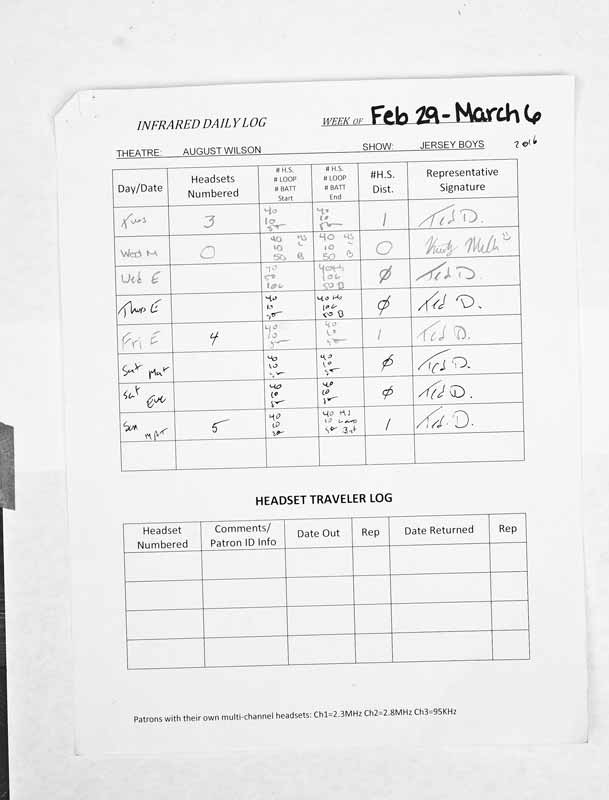 INFRARED DAILY LOG WEEK OF Feb 29 - March 6
THEATRE: AUGUST WILSON SHOW: JERSEY BOYS 2016
Day/Date Headsets Numbered # H.S. # LOOP # BATT Start # H.S. # LOOP # BATT End #H.S. Dist. Representative Signature
Tues 3 40 10 50 40 10 50 1 Ted D.
Wed M 0 40 HS 10 L 50 B 40 HS 10 L 50 B 0
Wed E 40HS 10L 50 B Ø Ted D.
Thurs E 40 10 50 40 HS 10L 50 B Ø Ted D.
Fri E 4 40 10 50 40 10 50 1 Ted D.
Sat Mat 40 10 50 40 10 50 Ø Ted D.
Sat Eve 40 10 50 40 10 50 Ø Ted D.
Sun Mat 5 40 10 50 40 HS 10 50 1 Ted. D.
HEADSET TRAVELER LOG
Headset Numbered Comments/ Patron ID Info Date Out Rep Date Returned Rep
Patrons with their own multi-channel headsets: Ch1=2.3MHz Ch2=2.8MHz Ch3=95KHz